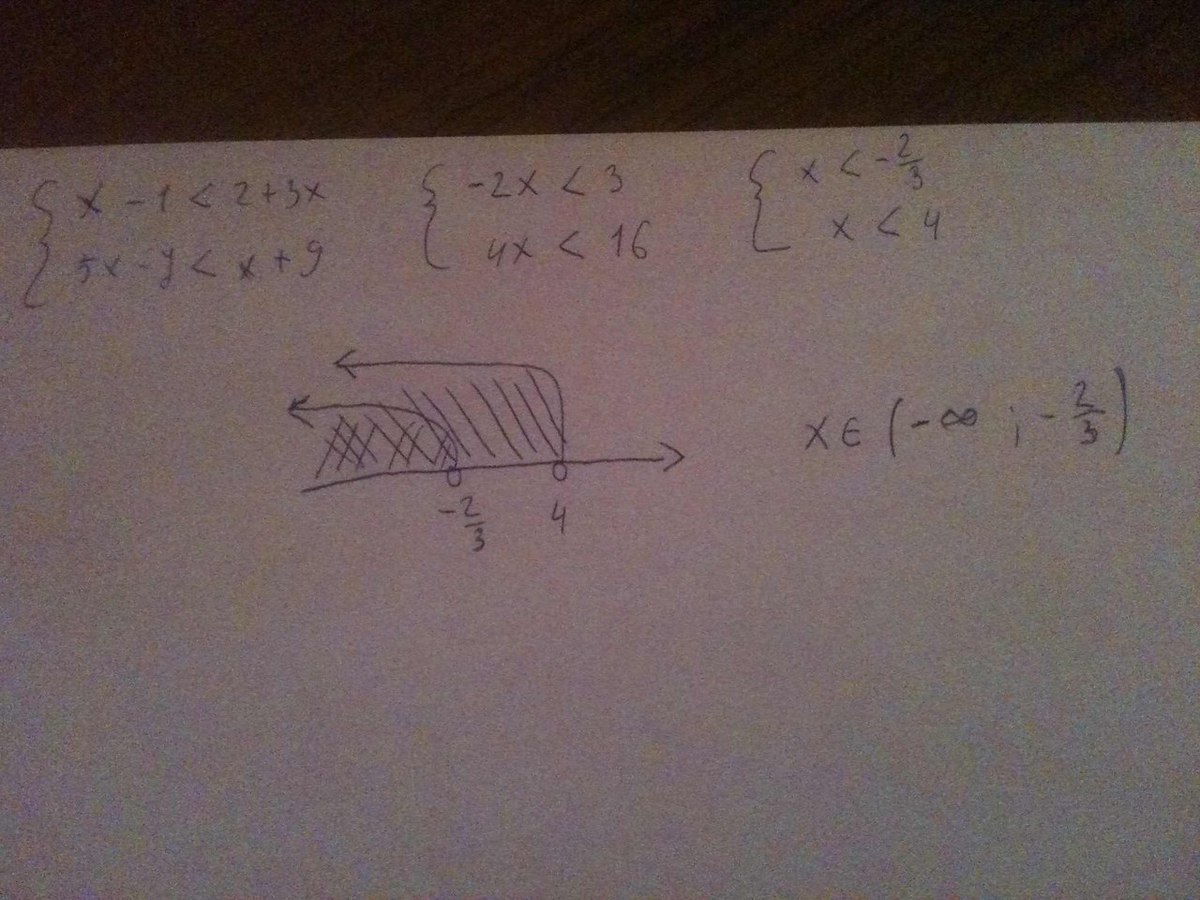 { x - 1 < 2 + 3x
5x - 7 < x + 9
{ -2x < 3
4x < 16
{ x < -2/3
x < 4
-2/3 4
x ∈ (-∞ ; -2/3)